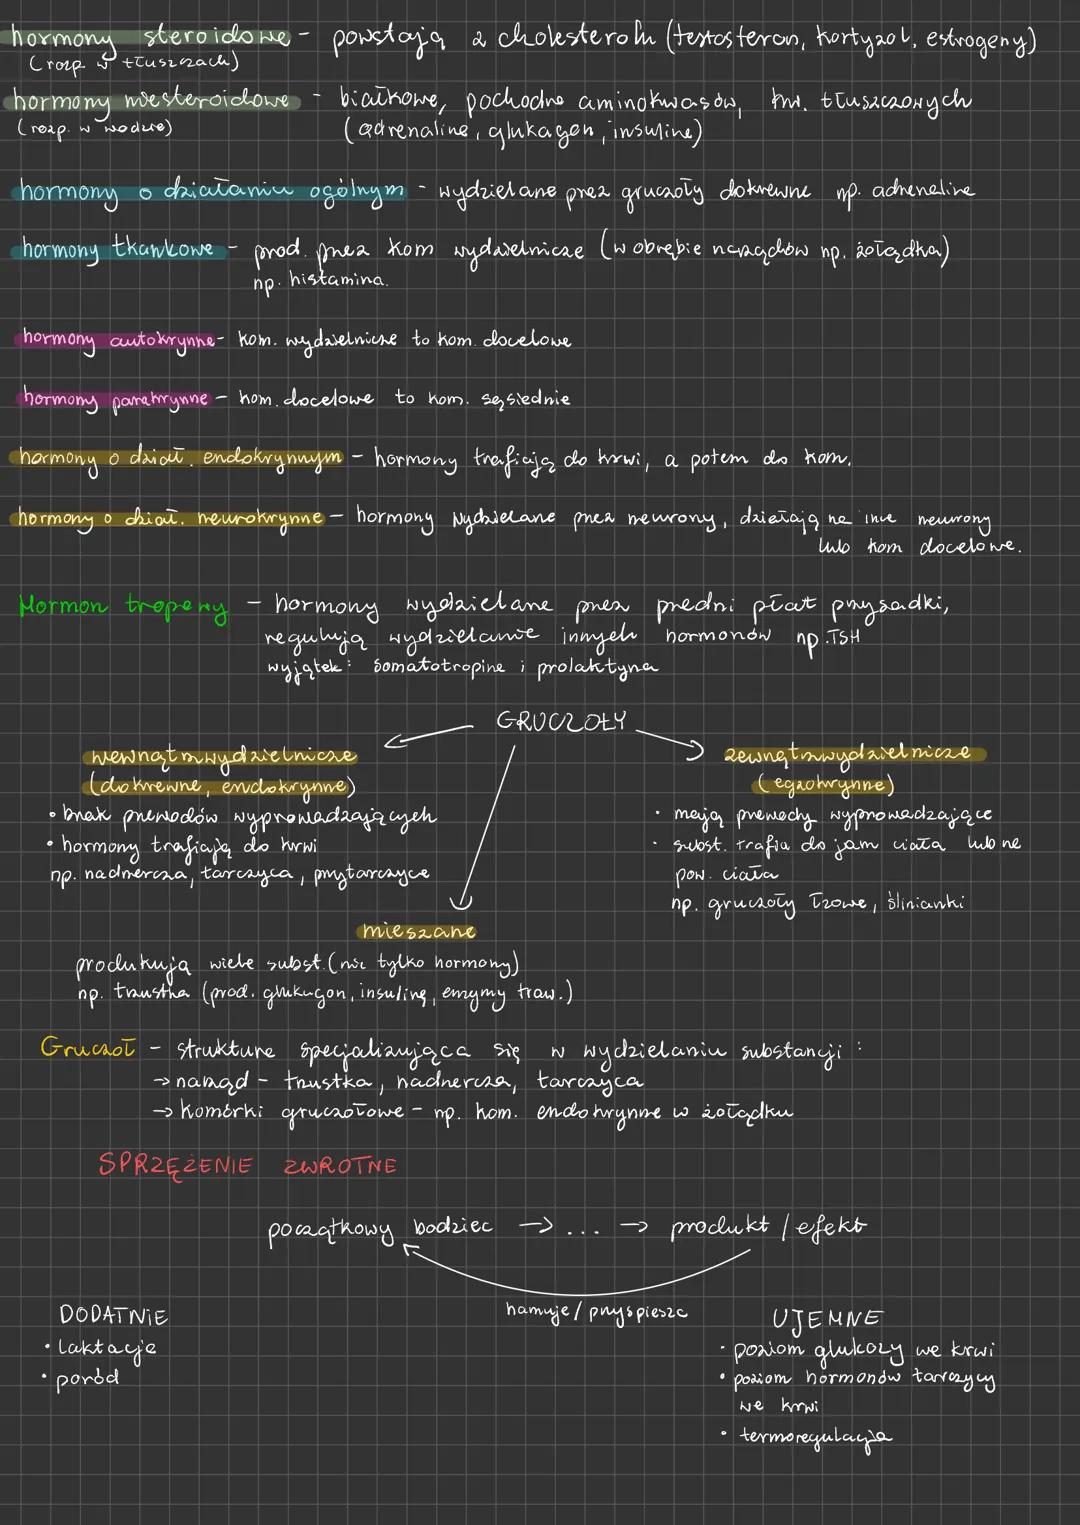 hormony steroidowe - powstają z cholesterolu (testosteron, kortyzol, estrogeny)
(rozp w tłuszczach)
hormony niesteroidowe - białkowe, pochodne aminokwasów, kw. tłuszczowych
(rozp. w wodzie) (adrenalina, glukagon, insulina)
hormony o działaniu ogólnym - wydzielane przez gruczoły dokrewne np. adrenalina
hormony tkankowe - prod. przez kom wydzielnicze (w obrębie narządów np. żołądka)
np. histamina.
hormony autokrynne - kom. wydzielnicze to kom. docelowe
hormony parakrynne - kom. docelowe to kom. sąsiednie
hormony o dział. endokrynnym - hormony trafiają do krwi, a potem do kom.
hormony o dział. neurokrynne - hormony wydzielane przez neurony, działają na inne neurony
lub kom docelowe.
Hormon tropowy - hormony wydzielane przez przedni płat przysadki,
regulują wydzielanie innych hormonów np. TSH
wyjątek: somatotropina i prolaktyna
GRUCZOŁY
wewnątrzwydzielnicze
(dokrewne, endokrynne)
• brak przewodów wyprowadzających
• hormony trafiają do krwi
np. nadnercza, tarczyca, przytarczyce
zewnątrzwydzielnicze
(egzokrynne)
• mają przewody wyprowadzające
• subst. trafia do jam ciała lub na
pow. ciała
np. gruczoły łzowe, ślinianki
mieszane
produkują wiele subst. (nie tylko hormony)
np. trzustka (prod. glukagon, insulinę, enzymy traw.)
Gruczoł - struktura specjalizująca się w wydzielaniu substancji:
→ narząd - trzustka, nadnercza, tarczyca
→ komórki gruczołowe - np. kom. endokrynne w żołądku
SPRZĘŻENIE ZWROTNE
początkowy bodziec → ... → produkt / efekt
hamuje / przyspiesza
DODATNIE
• laktacja
• poród
UJEMNE
• poziom glukozy we krwi
• poziom hormonów tarczycy
we krwi
• termoregulacja